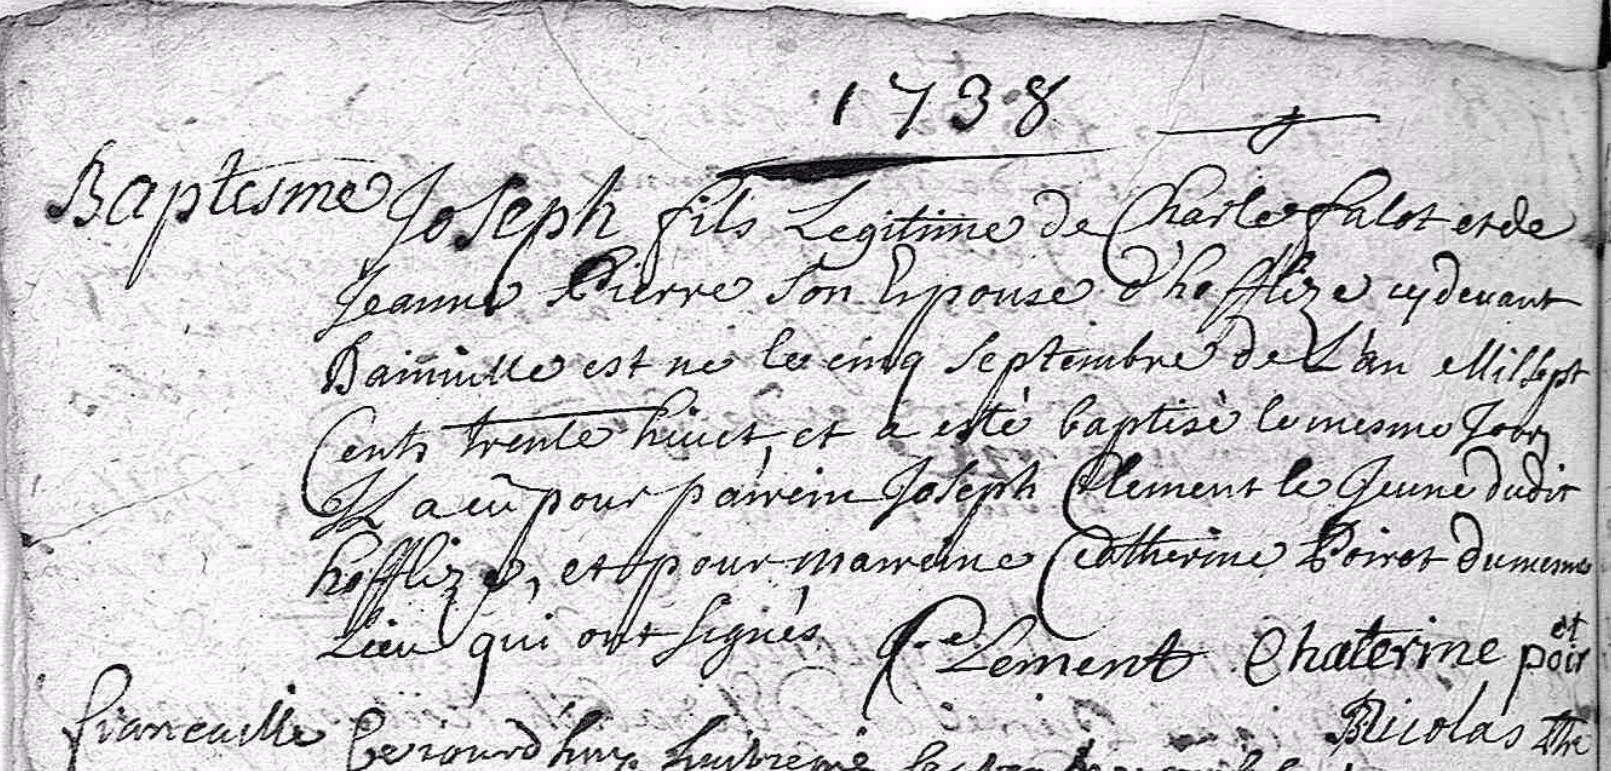 1738
Baptesme Joseph fils Legitime de Charle falot et de
Jeanne Pierre son Epouse d'hofflize cy devant
Dainville est né le cinq septembre de L'an Mil sept
Cents trente huict, et a esté baptisé le mesme Jour
Il a eu pour parrein Joseph Clement le Jeune dudit
hofflize, et pour marreine Catherine Poirot du mesme
Lieu qui ont signés J. Clement Chaterine poir
et
Nicolas
fiancaille Cejourd'huy huitieme